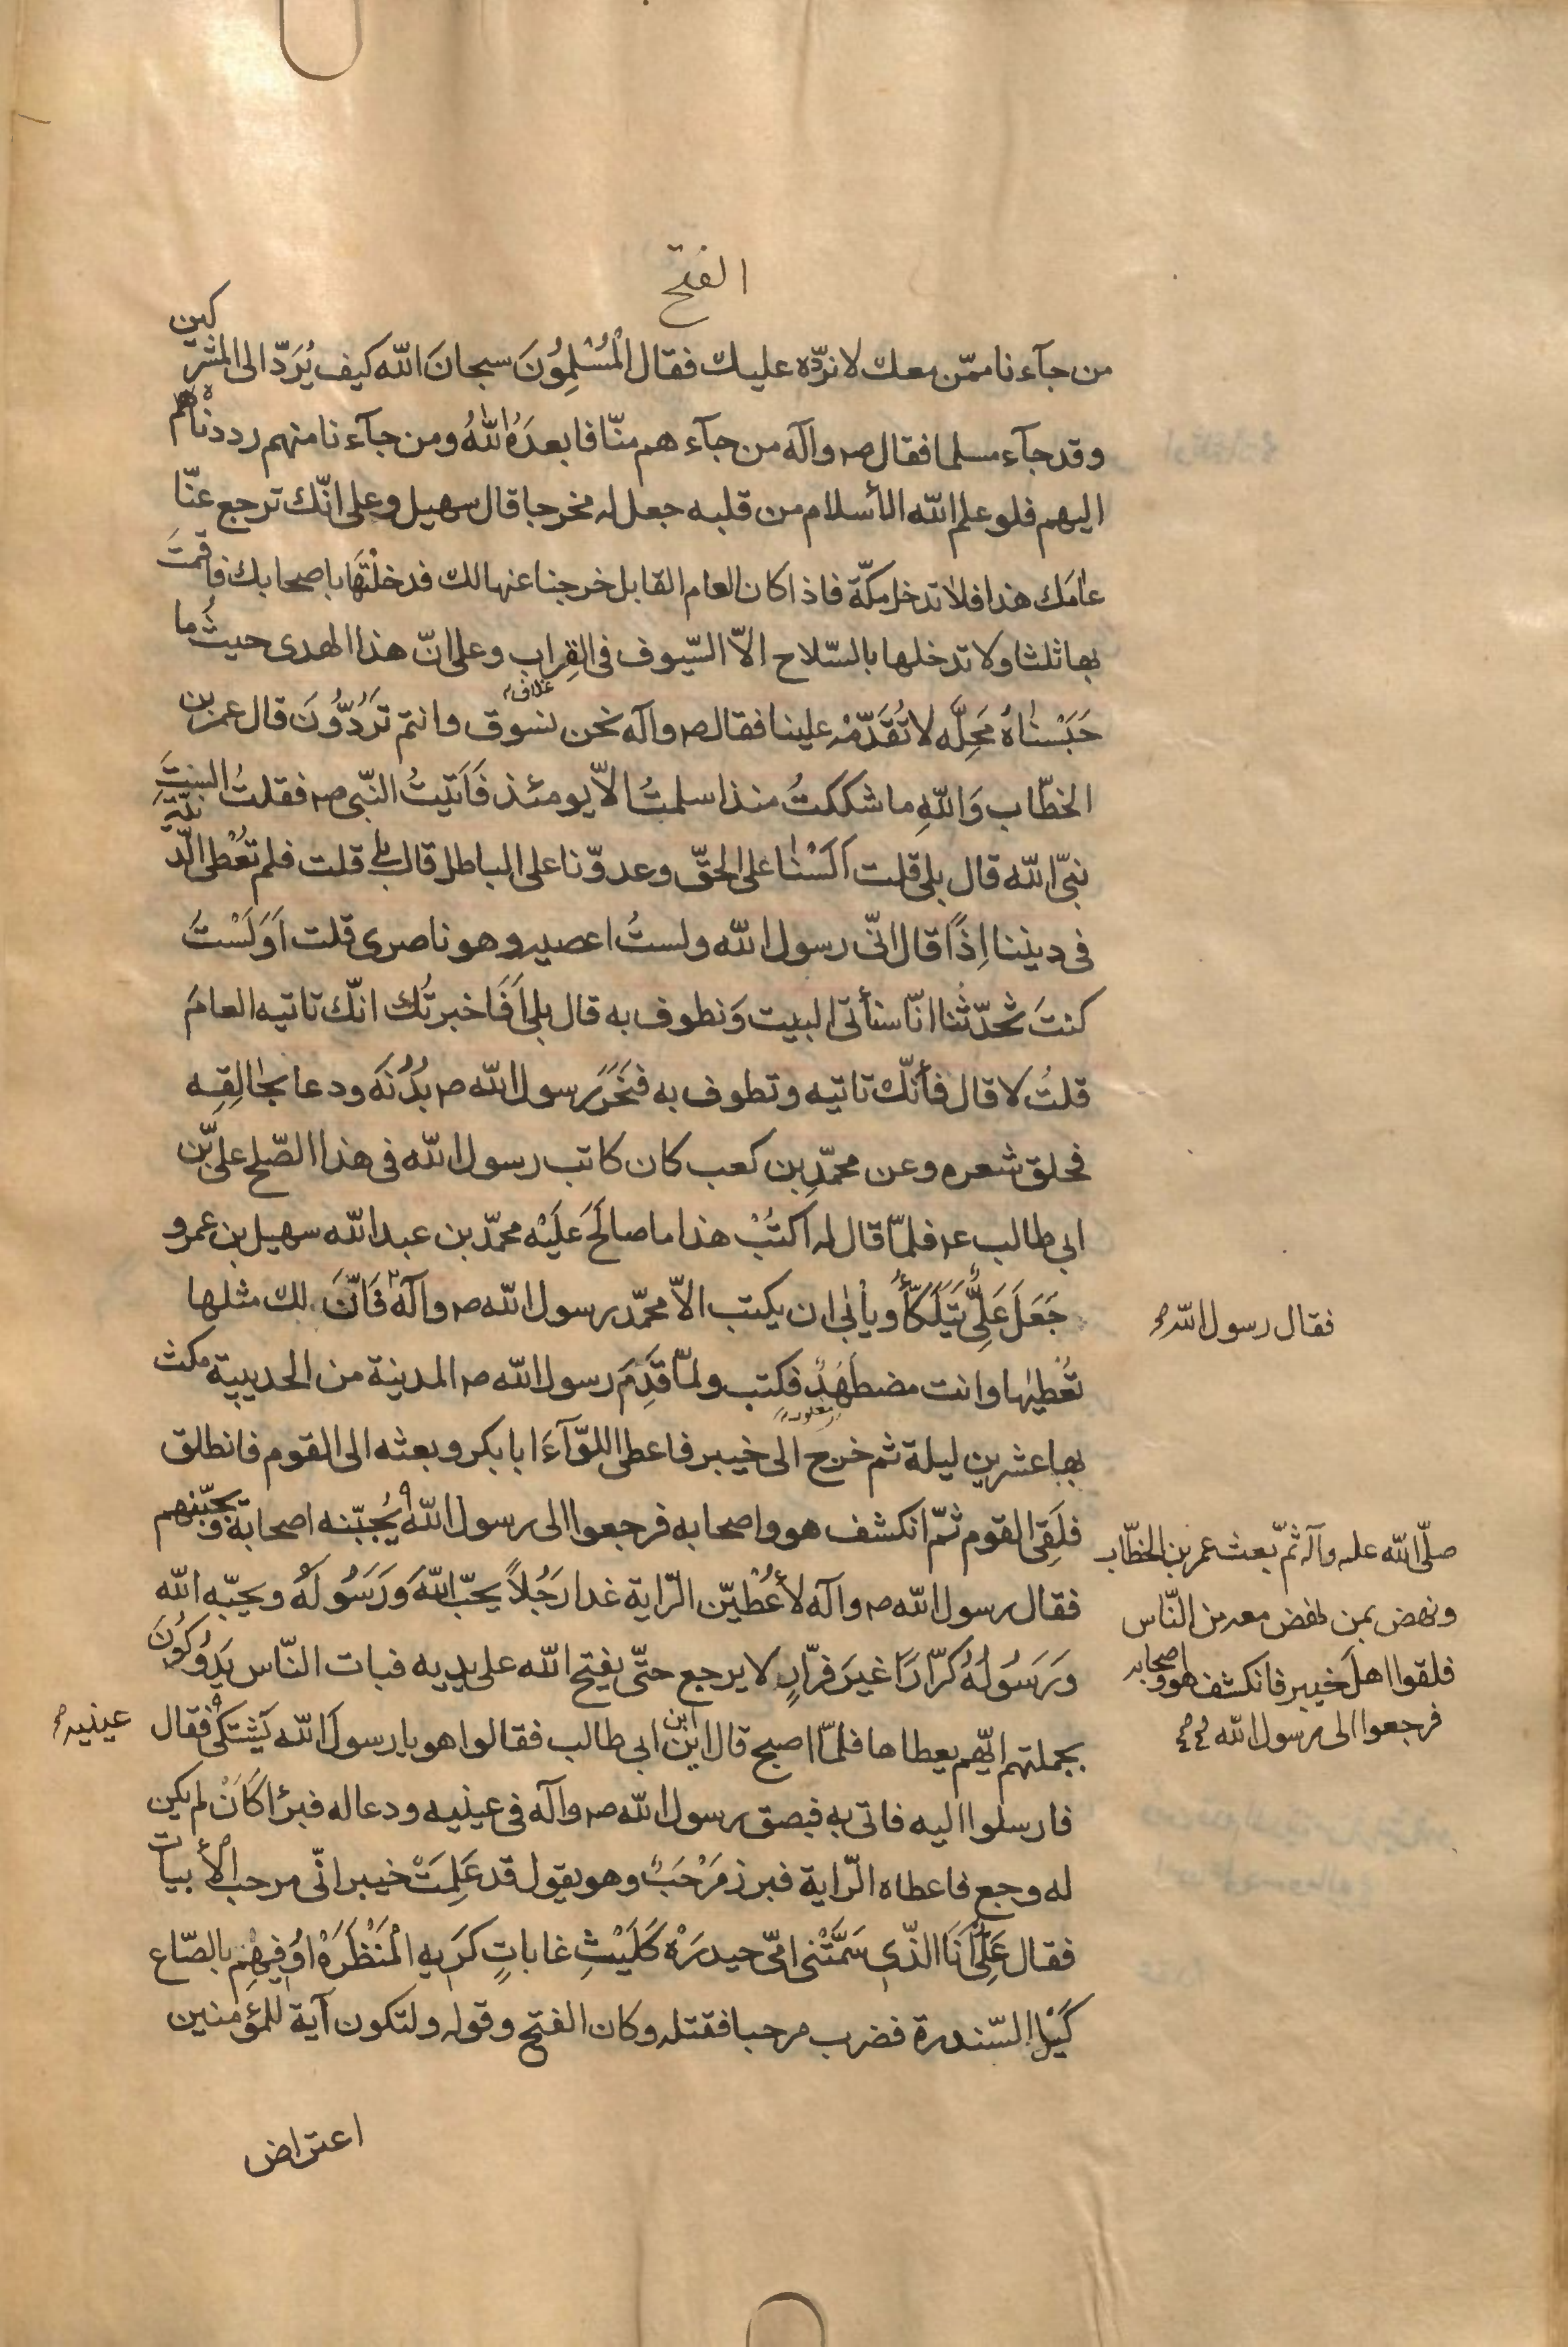 الفتح
من جآءنا ممّن معك لا نردّه عليك فقال الْمُسْلِمُونَ سبحانَ الله كيف يُرَدّ الى المشركين
وقد جآء مسلما فقال ص وآله من جآءهم منّا فابعدَهُ اللهُ ومن جآءنا منهم رددْناهُم
اليهم فلو علم الله الأسلام من قلبه جعل له مخرجا قال سهيل وعلى انّك ترجع عنّا
عامَك هذا فلا تدخل مكّة فاذا كان العام القابل خرجنا عنها لك فدخلْتَها باصحابك فاقمتَ
بها ثلثا ولا تدخلها بالسّلاح الاّ السّيوف فى القِراب وعلى انّ هذا الهدى حيثُ ما
غلاف
حَبَسْناهُ مَحِلَّه لا تُقَدّمْه علينا فقال ص وآله نحن نسوق وانتم تَرُدّونَ قال عمر بن
الخطّاب وَاللهِ ما شككتُ منذ اسلمتُ الاّ يومئذ فَاَتيتُ النّبى ص فقلتُ الستَ
نبىّ الله قال بلى قلت اَلَسْنا على الحقّ وعدوّنا على الباطل قال بلى قلت فلم تُعْطى الدّنيّة
فى ديننا اِذًا قال انّى رسول الله ولستُ اعصيه وهو ناصرى قلت اَوَلَسْتَ
كنتَ تُحدّثُنا انّا سنأتى البيت وَنطوف به قال بلى اَفَاخبرتُك انّك تاتيه العامَ
قلتُ لا قال فأنّك تاتيه وتطوف به فنَحَرَ رسول الله ص بُدْنَه ودعا بحالِقِه
فحلق شعره وعن محمّدِ بن كعب كان كاتب رسول الله فى هذا الصّلح علىّ بن
ابى طالب ع فلمّا قال له اكتُبْ هذا ما صالَحَ عَلَيْه محمّد بن عبد الله سهيل بن عمرو
جَعَلَ عَلِىٌّ يَتَلَكّأُ ويأبى ان يكتب الاّ محمّد رسول الله ص وآله فَانَّ لك مثلها
فقال رسول الله ص
تُعْطيها وانت مضطَهَدٌ فكتب ولمّا قَدِمَ رسول الله ص المدينة من الحديبية مكث
مغلوب
بها عشرين ليلة ثم خرج الى خيبر فاعطى اللوّآءَ ابا بكر وبعثه الى القوم فانطلق
فلَقِىَ القوم ثمّ انكشف هو واصحابه فرجعوا الى رسول الله يُجبّنه اصحابه ويجبّنهم
صلّى الله عليه وآله ثمّ بعث عمر بن الخطّاب
ونهض بمن نهض معه من النّاس
فلقوا اهلَ خيبر فانكشف هو واصحابه
فرجعوا الى رسول الله
فقال رسول الله ص وآله لأُعْطيَنّ الرّاية غدا رَجُلاً يحبّ اللهَ وَرَسُولَهُ ويحبّه الله
وَرَسُولُهُ كرّارًا غيرَ فرّارٍ لا يرجع حتّى يفتح الله على يديه فبات النّاس يَدُوكُونَ
بجملتهم ايّهم يعطاها فلمّا اصبح قال اين ابن ابى طالب فقالوا هو يا رسولَ الله يَشتكى فقال
عينيه
فارسلوا اليه فاتى به فبصق رسول الله ص وآله فى عينيه ودعا له فبرُا كَاَنْ لم يكن
له وجع فاعطاه الرّاية فبرز مَرْحَبٌ وهو يقول قد عَلِمَتْ خيبر انّى مرحب الأبيات
فقال عَلِىٌّ اَنَا الذّى سَمَّتْنى امّى حيدرَهْ كَلَيْثِ غاباتٍ كَريهِ الْمَنْظَرَهْ اوُفيهِمْ بالصّاع
كَيْلَ السّندرة فضرب مرحبا فقتله وكان الفتح وقوله ولتكون آية للمؤمنين
اعتراض